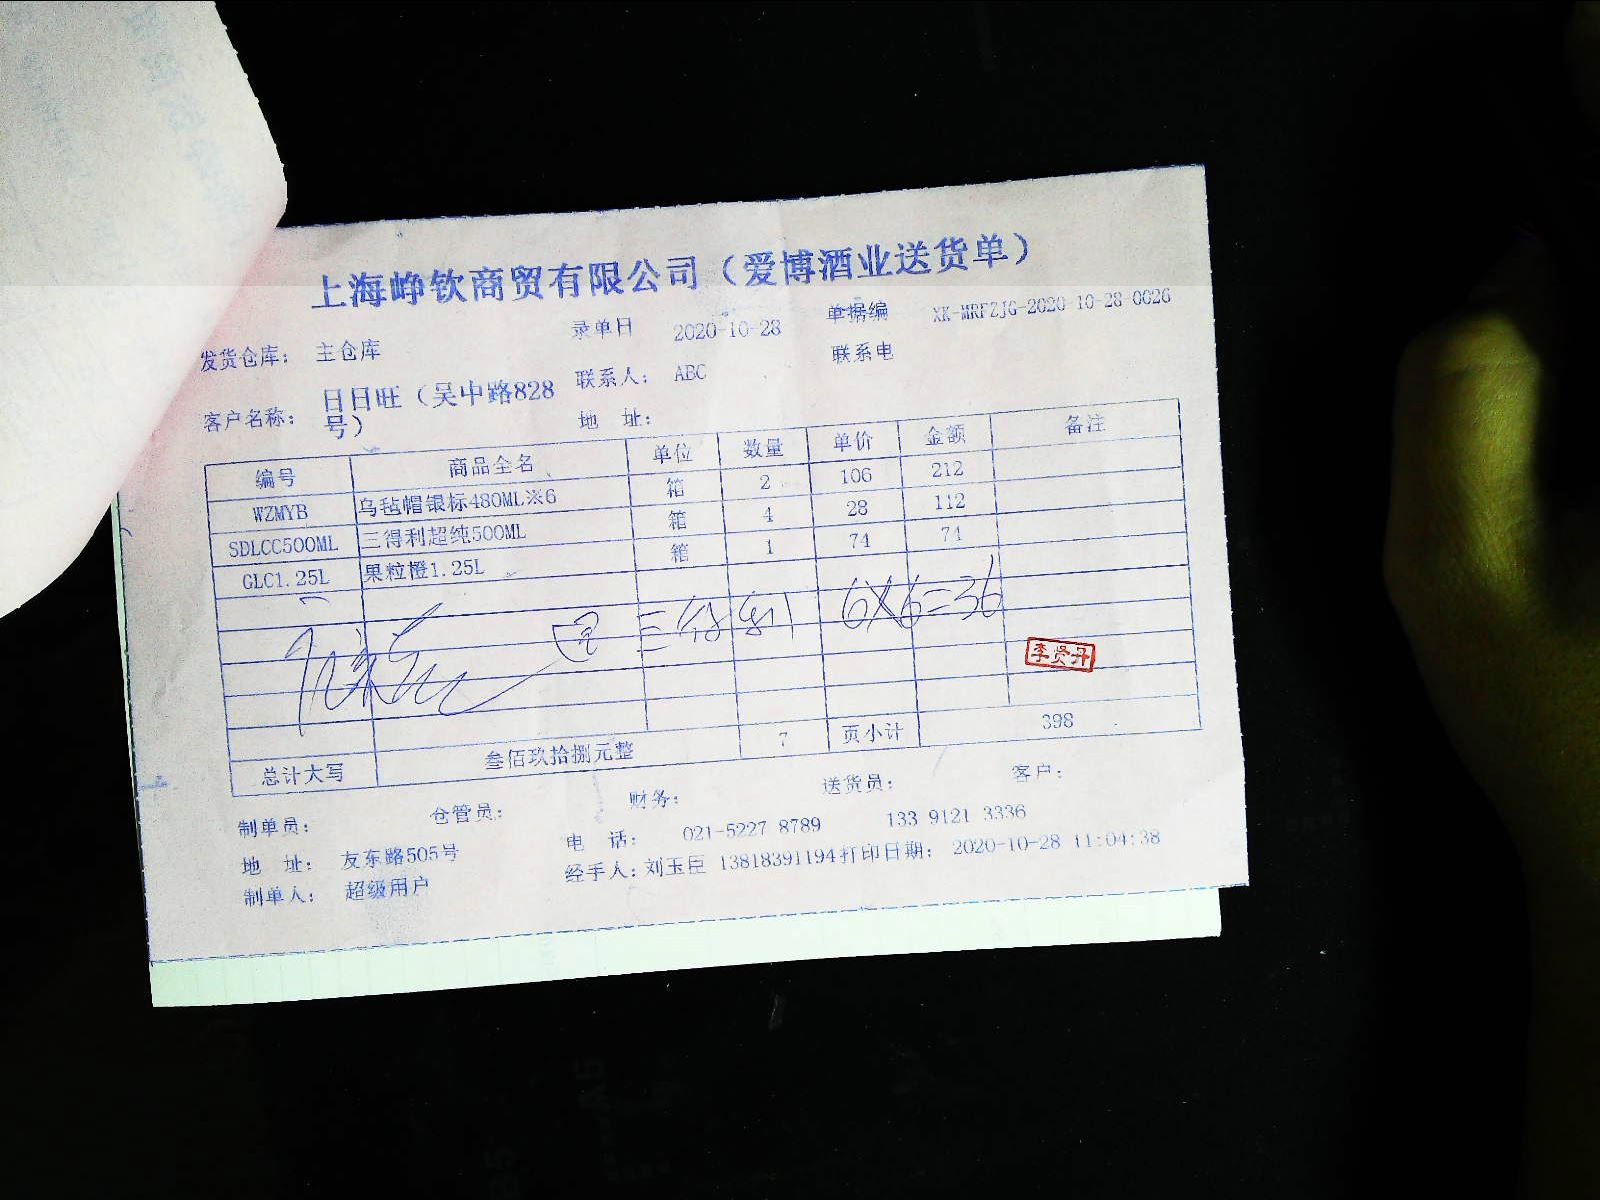 上海峥钦商贸有限公司（爱博酒业送货单）
发货仓库： 主仓库 录单日 2020-10-28 单据编 XK-MRFZJG-2020-10-28-0026
客户名称： 日日旺（吴中路828号） 联系人： ABC 联系电
地 址：
编号 商品全名 单位 数量 单价 金额 备注
WZMYB 乌毡帽银标480ML※6 箱 2 106 212
SDLCC500ML 三得利超纯500ML 箱 4 28 112
GLC1.25L 果粒橙1.25L 箱 1 74 74
三得利 6×6=36
李贤丹
总计大写 叁佰玖拾捌元整 7 页小计 398
制单员： 仓管员： 财务： 送货员： 客户：
地 址： 友东路505号 电 话： 021-5227 8789 133 9121 3336
制单人： 超级用户 经手人：刘玉臣 13818391194打印日期： 2020-10-28 11:04:38